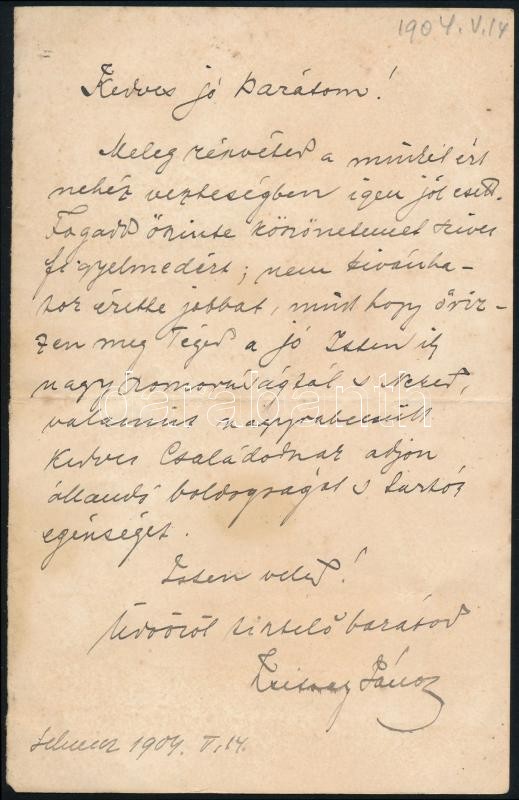 1904. V. 14
Kedves jó Barátom!
Meleg részvéted a minket ért
nehéz veszteségben igen jól esett.
Fogadd őszinte köszönetemet szíves
figyelmedért; nem kívánha-
tok érette jobbat, mint hogy őriz-
zen meg Téged a jó Isten ily
nagy szomorúságtól s Neked,
valamint nagyrabecsült
kedves Családodnak adjon
állandó boldogságot s tartós
egészséget.
Isten veled!
Üdvözöl tisztelő barátod
János
1904. V. 14.
darabanth